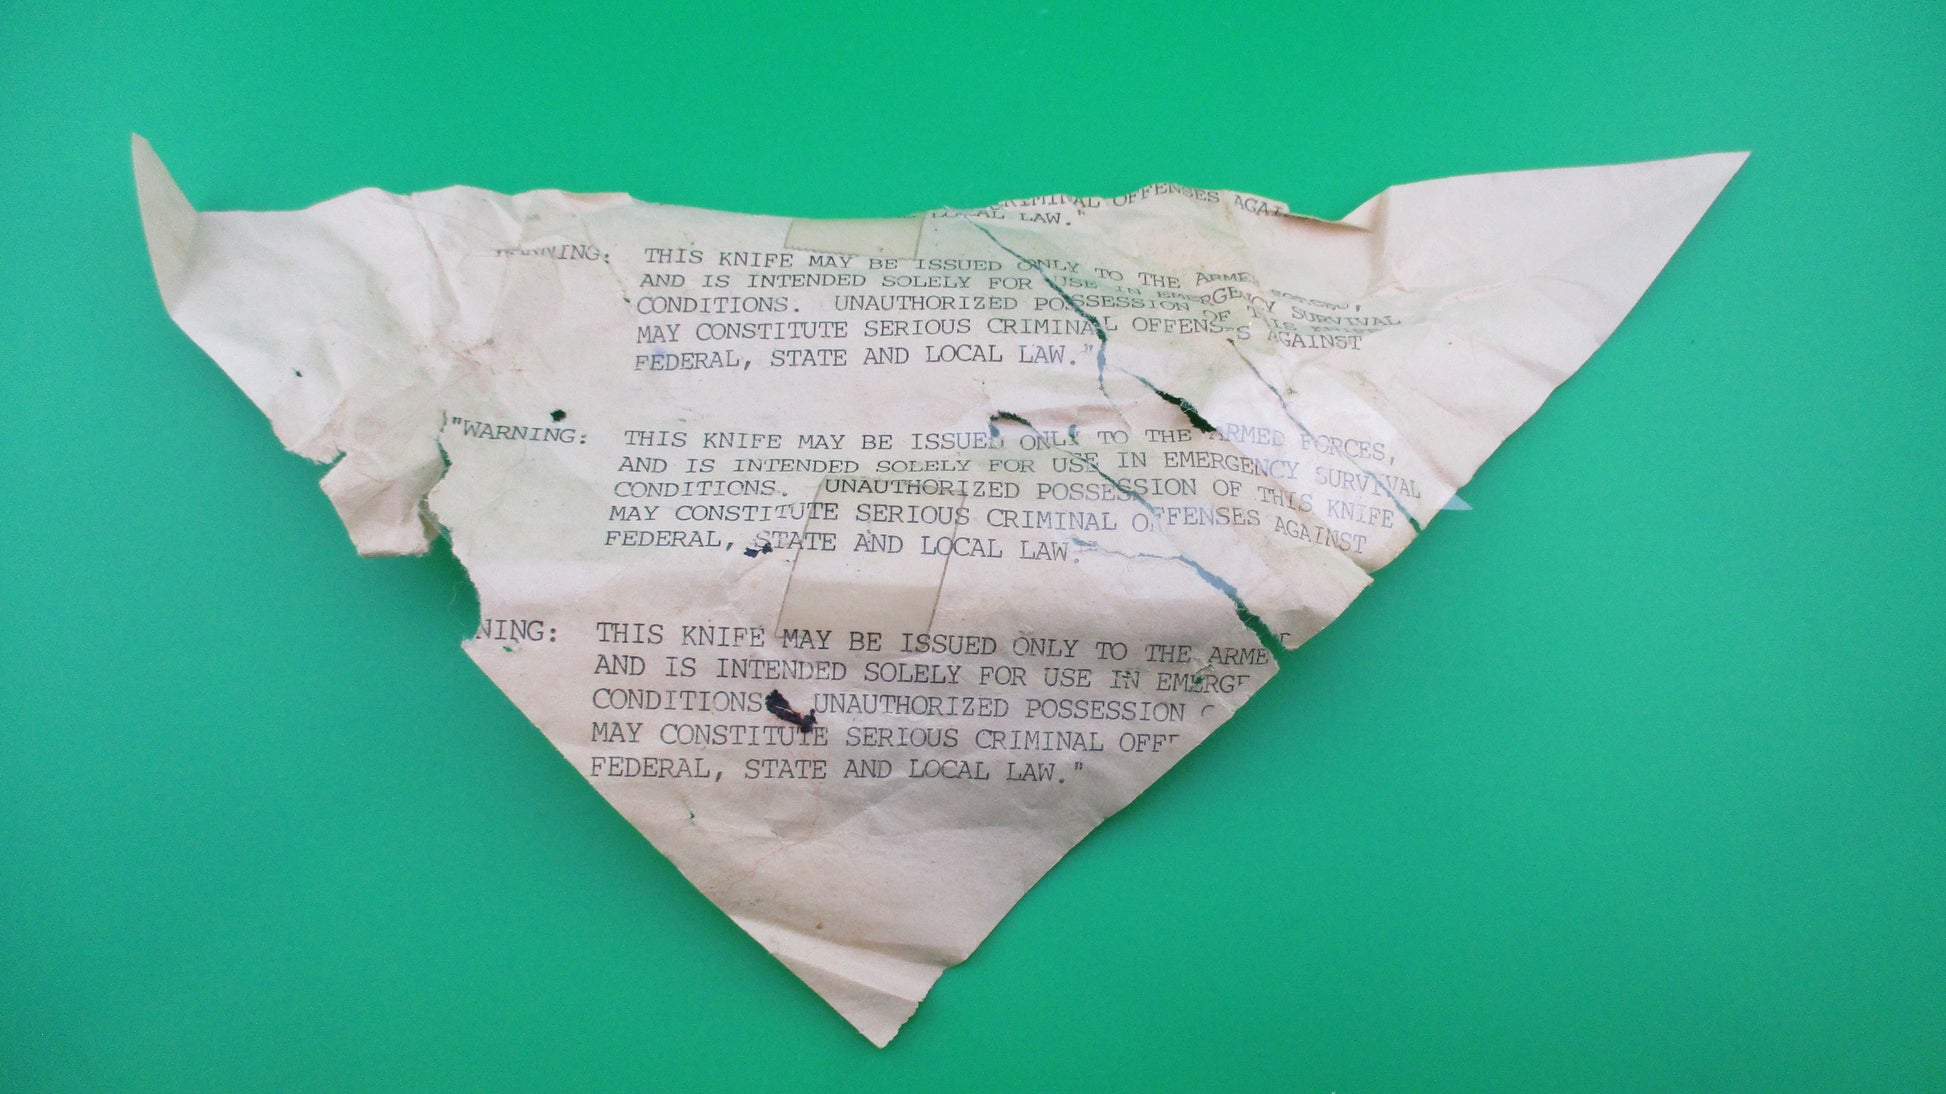 CRIMINAL OFFENSES AGAI
LOCAL LAW."
WARNING: THIS KNIFE MAY BE ISSUED ONLY TO THE ARMED FORCES,
AND IS INTENDED SOLELY FOR USE IN EMERGENCY SURVIVAL
CONDITIONS. UNAUTHORIZED POSSESSION OF THIS KNIFE
MAY CONSTITUTE SERIOUS CRIMINAL OFFENSES AGAINST
FEDERAL, STATE AND LOCAL LAW."
"WARNING: THIS KNIFE MAY BE ISSUED ONLY TO THE ARMED FORCES,
AND IS INTENDED SOLELY FOR USE IN EMERGENCY SURVIVAL
CONDITIONS. UNAUTHORIZED POSSESSION OF THIS KNIFE
MAY CONSTITUTE SERIOUS CRIMINAL OFFENSES AGAINST
FEDERAL, STATE AND LOCAL LAW."
NING: THIS KNIFE MAY BE ISSUED ONLY TO THE ARME
AND IS INTENDED SOLELY FOR USE IN EMERGE
CONDITIONS UNAUTHORIZED POSSESSION
MAY CONSTITUTE SERIOUS CRIMINAL OFF
FEDERAL, STATE AND LOCAL LAW."